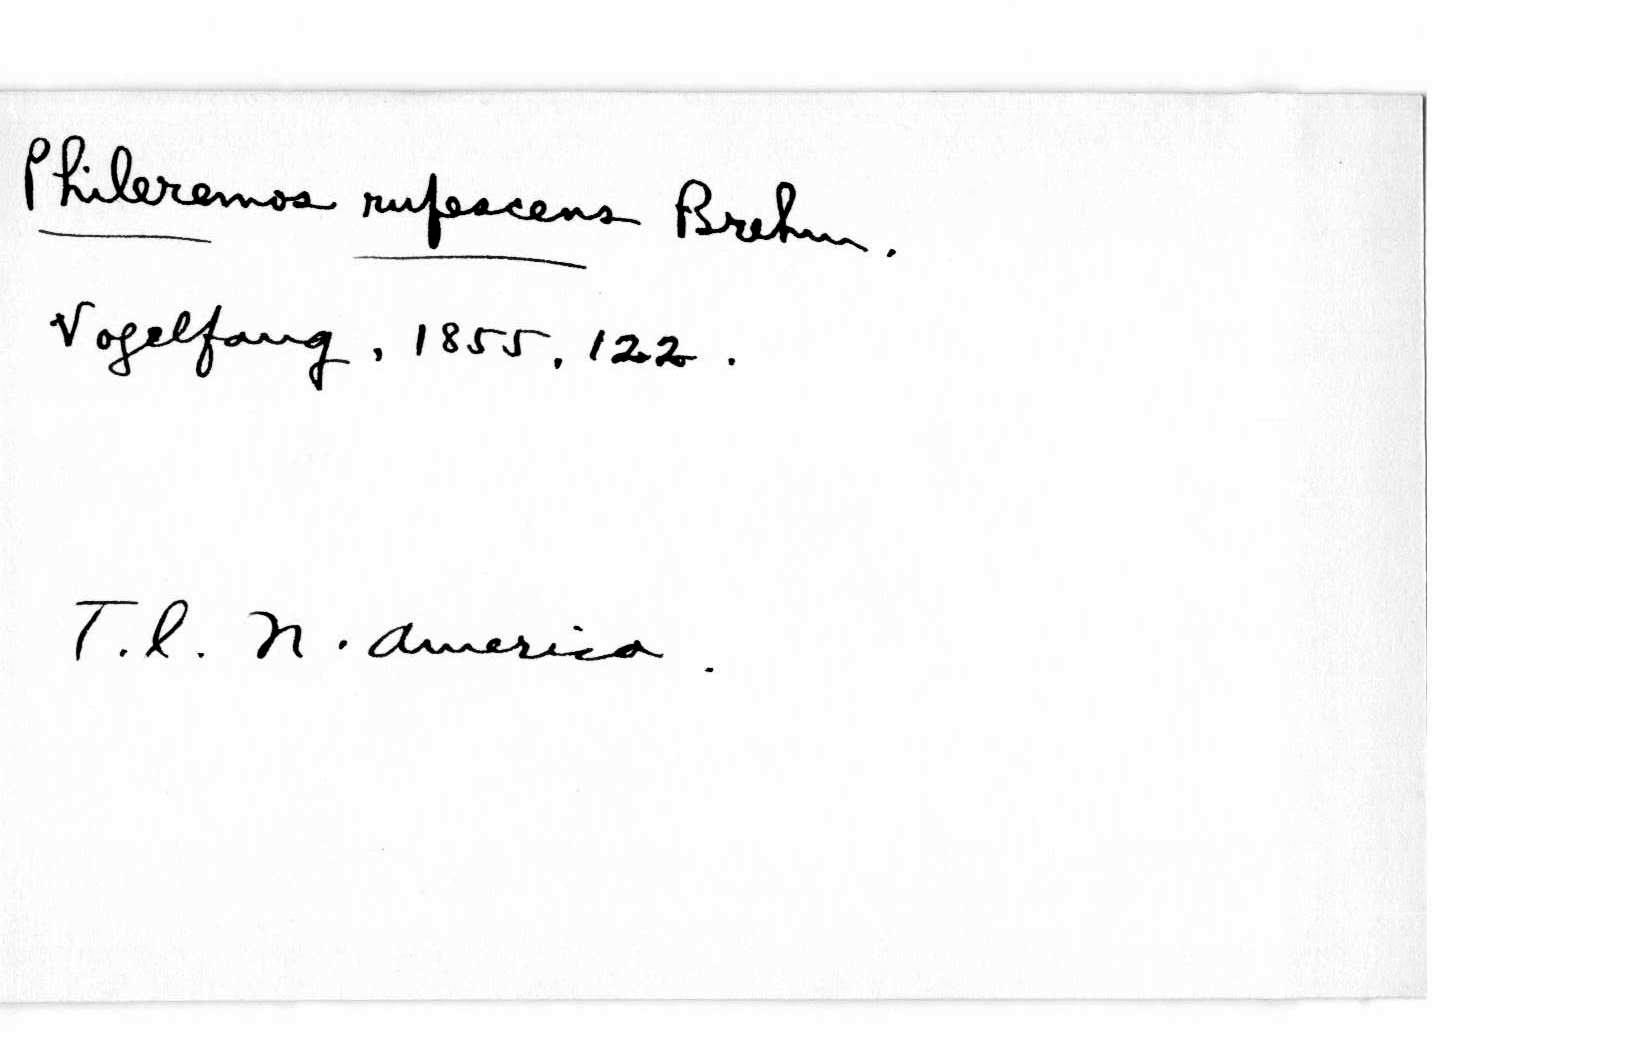 Phileremos rufescens Brehm.
Vogelfang, 1855, 122.
T.l. N. America.